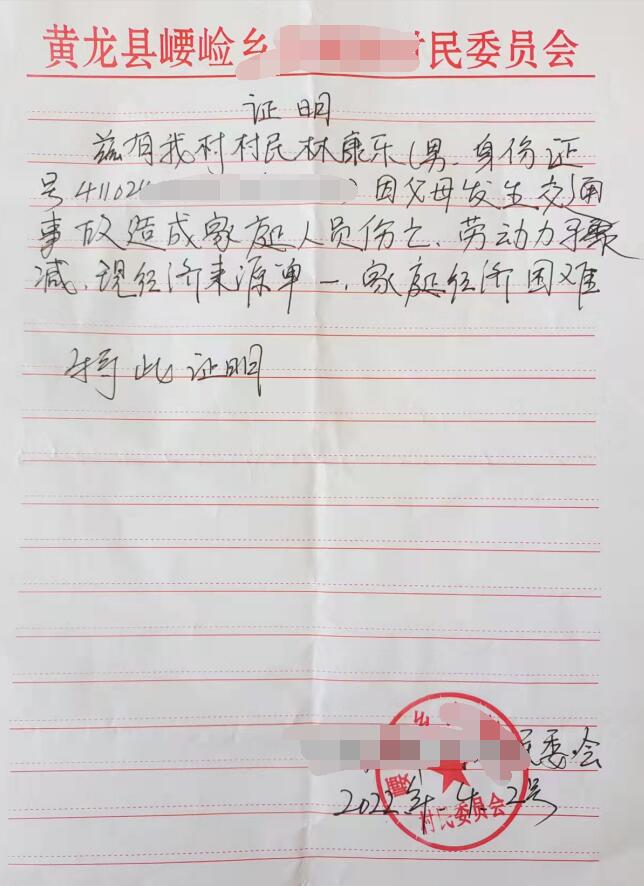 黄龙县崾崄乡
村民委员会
证明
兹有我村村民林康乐(男、身份证
号411024 )因父母发生交通
事故造成家庭人员伤亡、劳动力骤
减、现经济来源单一、家庭经济困难
特此证明
民委会
2022年4.2号
村民委员会